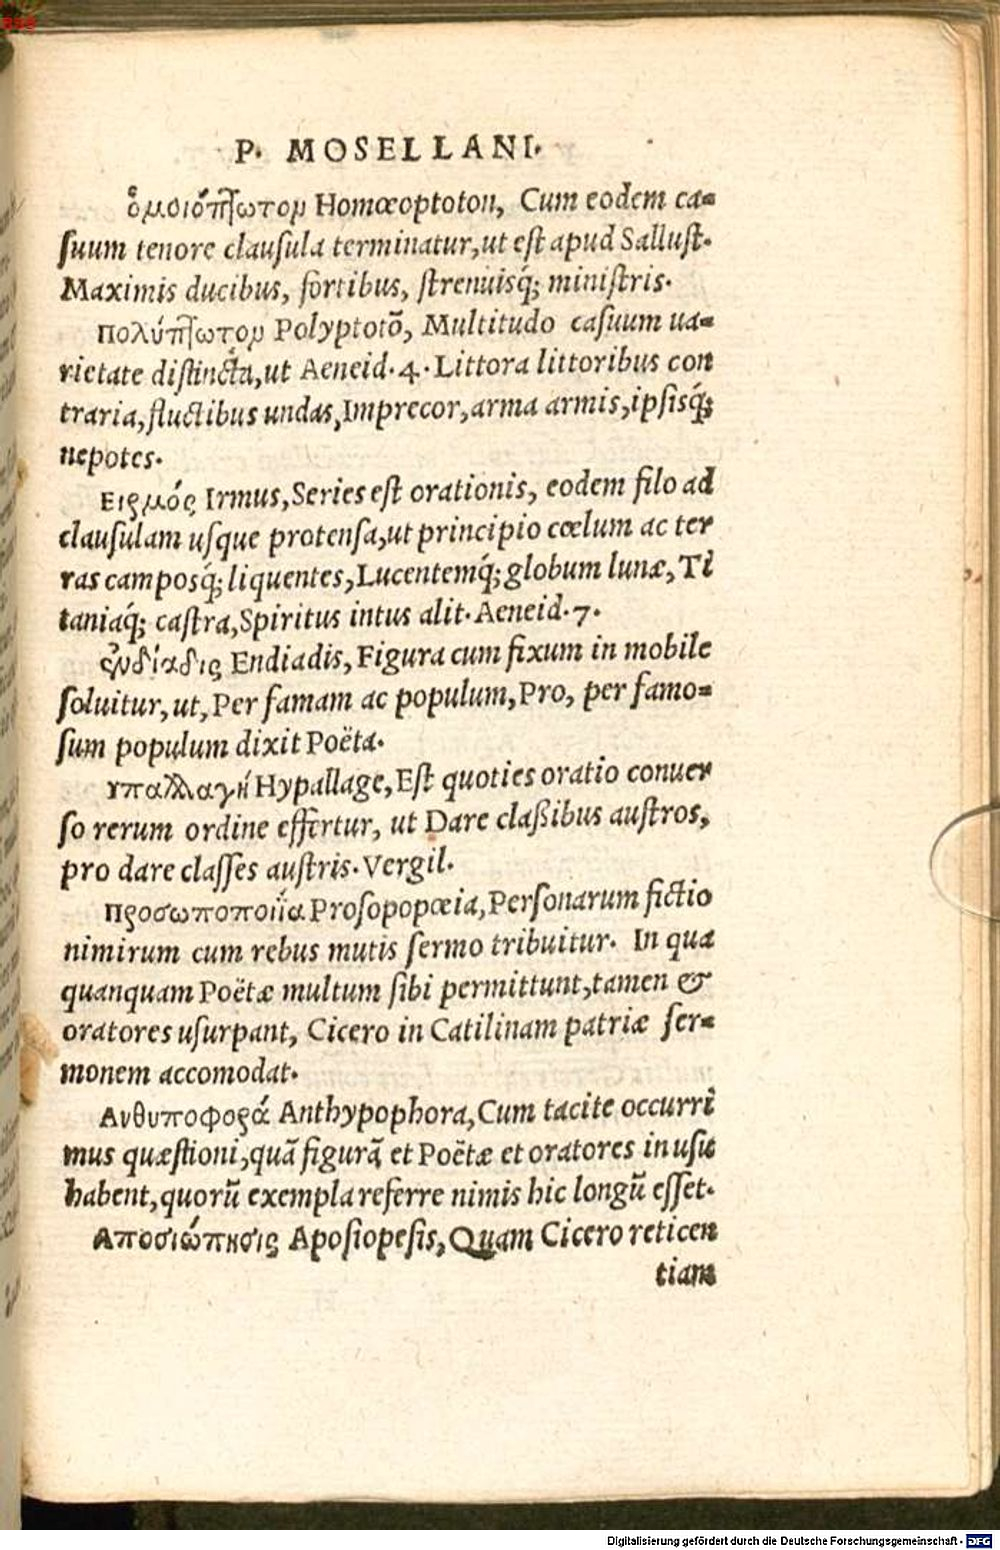 P. MOSELLANI.
ὁμοιόπτωτον Homœoptoton, Cum eodem ca=
ſuum tenore clauſula terminatur,ut eſt apud Salluſt.
Maximis ducibus, fortibus, ſtrenuisq́; miniſtris.
πολύπτωτον Polyptotō, Multitudo caſuum ua=
rietate diſtincta,ut Aeneid.4. Littora littoribus con
traria,fluctibus undas,Imprecor,arma armis,ipſisq́;
nepotes.
Ειρμός Irmus,Series eſt orationis, eodem filo ad
clauſulam uſque protenſa,ut principio cœlum ac ter
ras camposq́; liquentes,Lucentemq́; globum lunæ,Ti
taniaq́; caſtra,Spiritus intus alit. Aeneid.7.
ἑνδίαδις Endiadis,Figura cum fixum in mobile
ſoluitur,ut,Per famam ac populum,Pro, per famo=
ſum populum dixit Poëta.
υπαλλαγὴ Hypallage,Eſt quoties oratio conuer
ſo rerum ordine effertur, ut Dare claßibus auſtros,
pro dare claſſes auſtris. Vergil.
προσωποποιΐα Proſopopœia,Perſonarum fictio
nimirum cum rebus mutis ſermo tribuitur. In qua
quanquam Poëtæ multum ſibi permittunt,tamen &
oratores uſurpant, Cicero in Catilinam patriæ ſer=
monem accomodat.
Ανθυποφορά Anthypophora,Cum tacite occurri
mus quæſtioni,quā figurā et Poëtæ et oratores in uſu
habent,quorū exempla referre nimis hic longū eſſet.
Αποσιώπησις Apoſiopeſis,Quam Cicero reticen
tiam
Digitalisierung gefördert durch die Deutsche Forschungsgemeinschaft - DFG